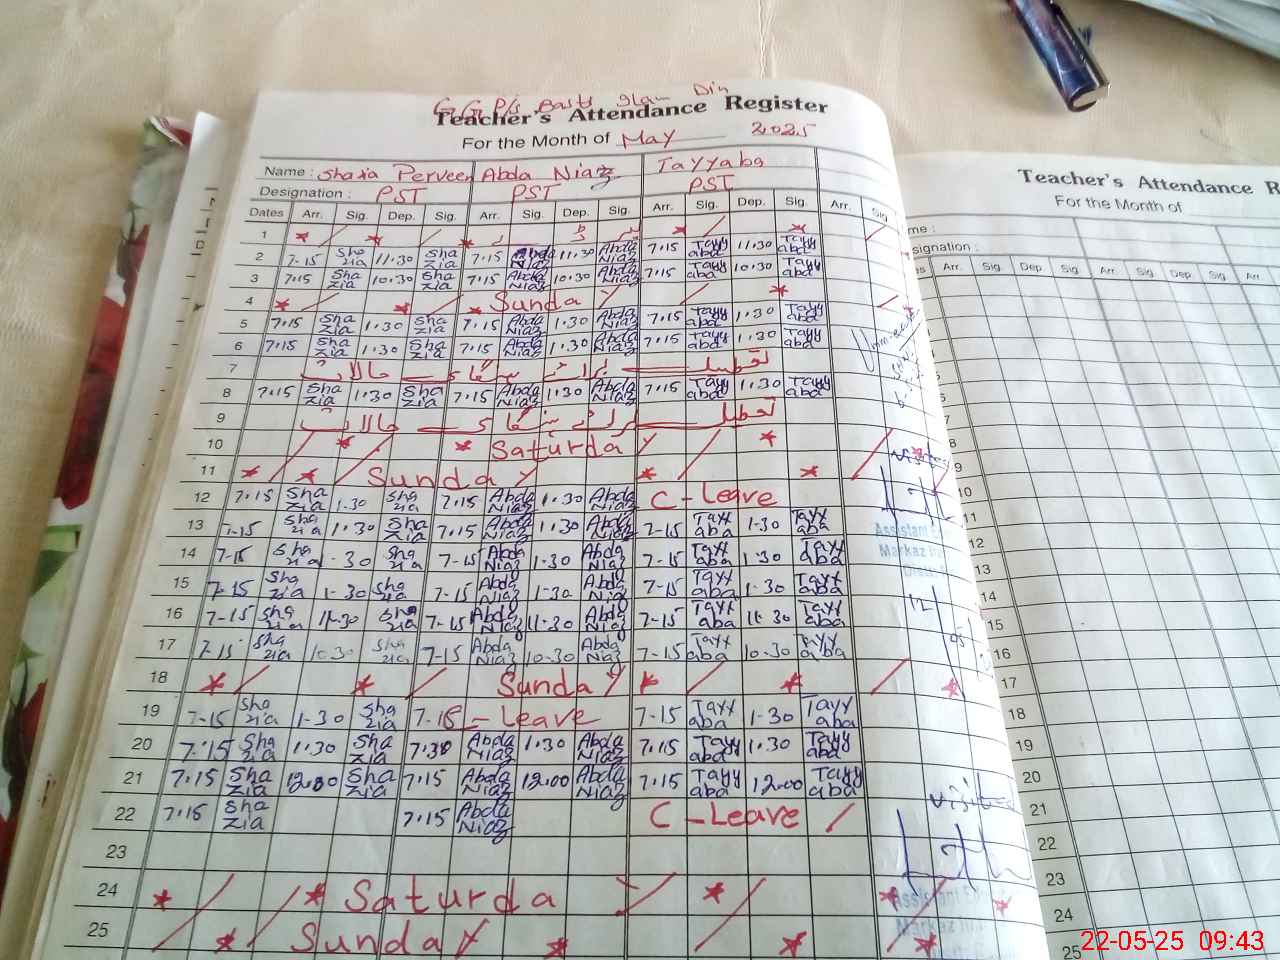 G.G P/s Basti Islam Din
Teacher's Attendance Register
For the Month of May 2025
Name : Shazia Perveen Abda Niaz Tayyaba
Designation : PST PST PST
Dates Arr. Sig. Dep. Sig. Arr. Sig. Dep. Sig. Arr. Sig. Dep. Sig. Arr. Sig.
1
2 7.15 Shazia 11.30 Shazia 7.15 Abda Niaz 11.30 Abda Niaz 7.15 Tayyaba 11.30 Tayyaba
3 7.15 Shazia 10.30 Shazia 7.15 Abda Niaz 10.30 Abda Niaz 7.15 Tayyaba 10.30 Tayyaba
4 Sunday
5 7.15 Shazia 1.30 Shazia 7.15 Abda Niaz 1.30 Abda Niaz 7.15 Tayyaba 1.30 Tayyaba
6 7.15 Shazia 1.30 Shazia 7.15 Abda Niaz 1.30 Abda Niaz 7.15 Tayyaba 1.30 Tayyaba
7 تعطیل
8 7.15 Shazia 1.30 Shazia 7.15 Abda Niaz 1.30 Abda Niaz 7.15 Tayyaba 1.30 Tayyaba
9 تعطیل
10 Saturday
11 Sunday
12 7.15 Shazia 1.30 Shazia 7.15 Abda Niaz 1.30 Abda Niaz C-Leave
13 7-15 Shazia 1.30 Shazia 7.15 Abda Niaz 1.30 Abda Niaz 7-15 Tayyaba 1-30 Tayyaba
14 7-15 Shazia 1-30 Shazia 7-15 Abda Niaz 1-30 Abda Niaz 7-15 Tayyaba 1.30 Tayyaba
15 7-15 Shazia 1-30 Shazia 7-15 Abda Niaz 1-30 Abda Niaz 7-15 Tayyaba 1-30 Tayyaba
16 7-15 Shazia 11-30 Shazia 7-15 Abda Niaz 11-30 Abda Niaz 7-15 Tayyaba 11-30 Tayyaba
17 7-15 Shazia 10-30 Shazia 7-15 Abda Niaz 10-30 Abda Niaz 7-15 Tayyaba 10-30 Tayyaba
18 Sunday
19 7-15 Shazia 1-30 Shazia 7-15 C-Leave 7-15 Tayyaba 1-30 Tayyaba
20 7-15 Shazia 1.30 Shazia 7.30 Abda Niaz 1.30 Abda Niaz 7.15 Tayyaba 1.30 Tayyaba
21 7.15 Shazia 12.00 Shazia 7.15 Abda Niaz 12.00 Abda Niaz 7.15 Tayyaba 12.00 Tayyaba
22 7.15 Shazia 7.15 Abda Niaz C-Leave
23
24 Saturda
25 Sunday
visited
Assistant
Markaz
visited
Assistant
Markaz
Teacher's Attendance R
For the Month of
me :
signation :
es Arr. Sig. Dep. Sig. Arr. Sig. Dep. Sig. Arr.
7
8
9
10
11
12
13
14
15
16
17
18
19
20
21
22
23
24
25
22-05-25 09:43